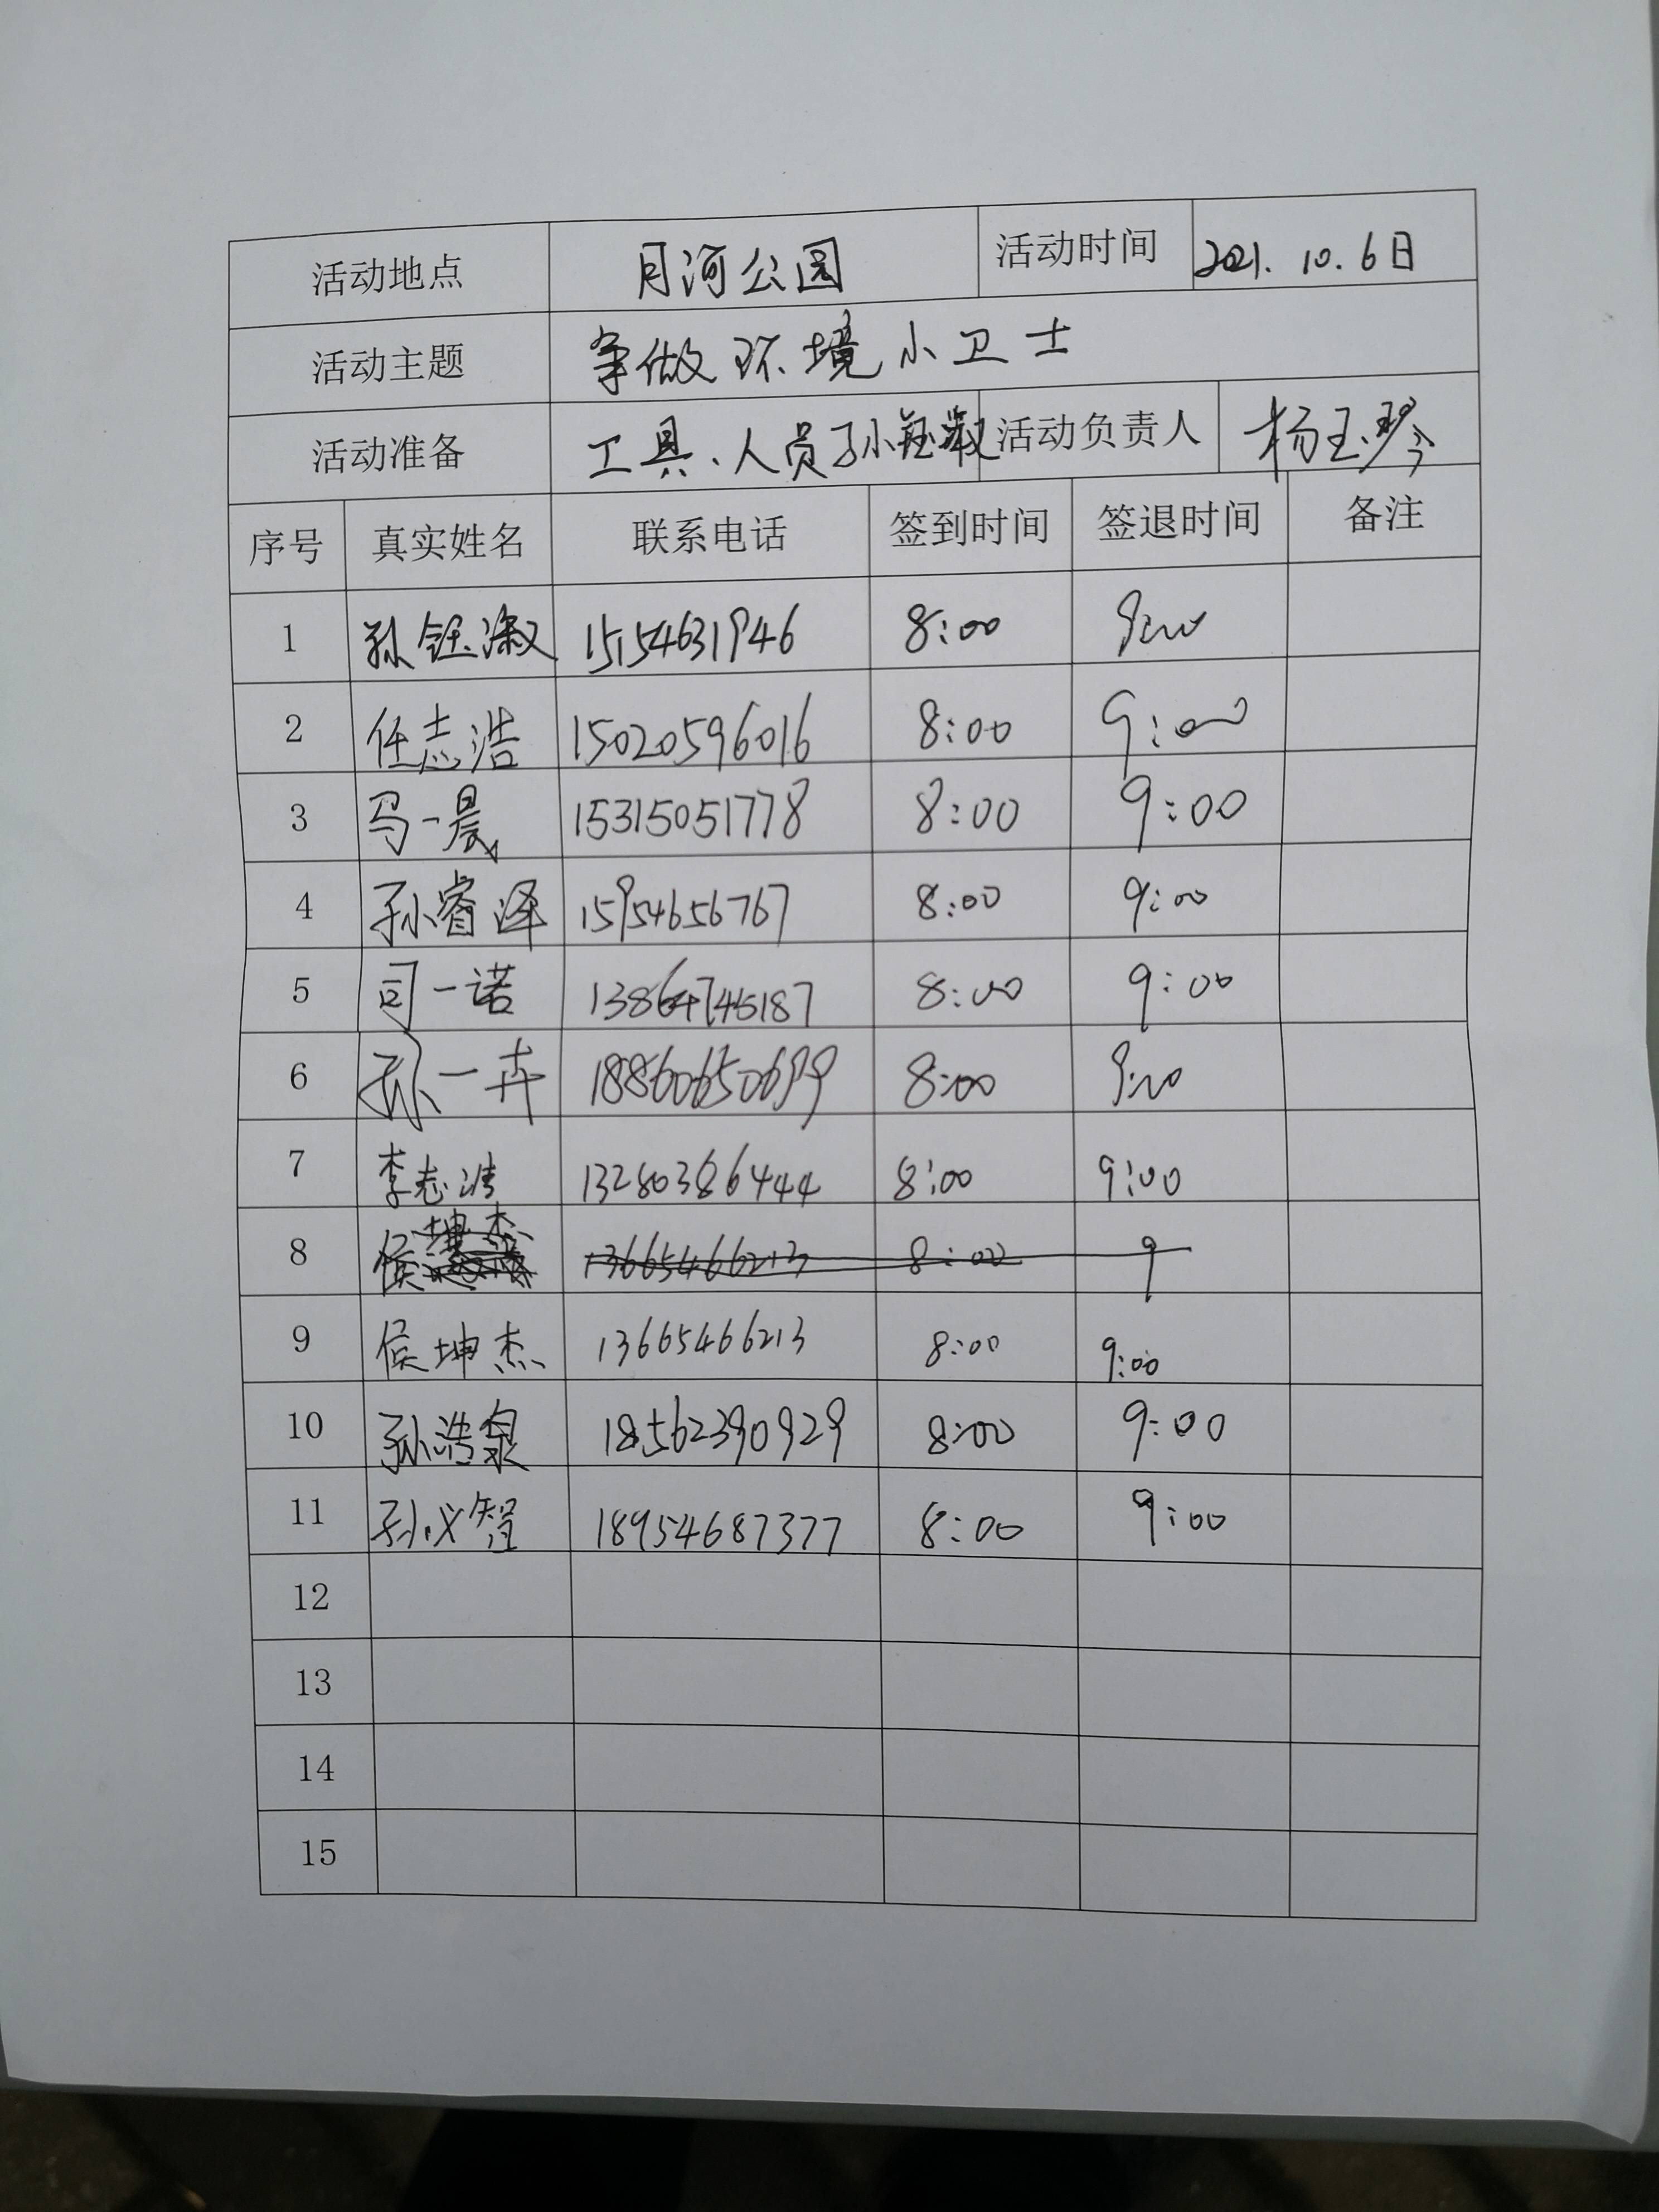 活动地点 月河公园 活动时间 2021.10.6日
活动主题 争做环境小卫士
活动准备 工具、人员孙钰淑 活动负责人 杨玉琴
序号 真实姓名 联系电话 签到时间 签退时间 备注
1 孙钰淑 15154631946 8:00 9:00
2 任志浩 15020596016 8:00 9:00
3 马一晨 15315051778 8:00 9:00
4 孙睿泽 15954656767 8:00 9:00
5 司一诺 13864745187 8:00 9:00
6 孙一卉 18860650699 8:00 9:00
7 李志浩 13280386444 8:00 9:00
8 侯坤杰 13665466213 8:00 9
9 侯坤杰 13665466213 8:00 9:00
10 孙浩泉 18562390929 8:00 9:00
11 孙义智 18954687377 8:00 9:00
12
13
14
15